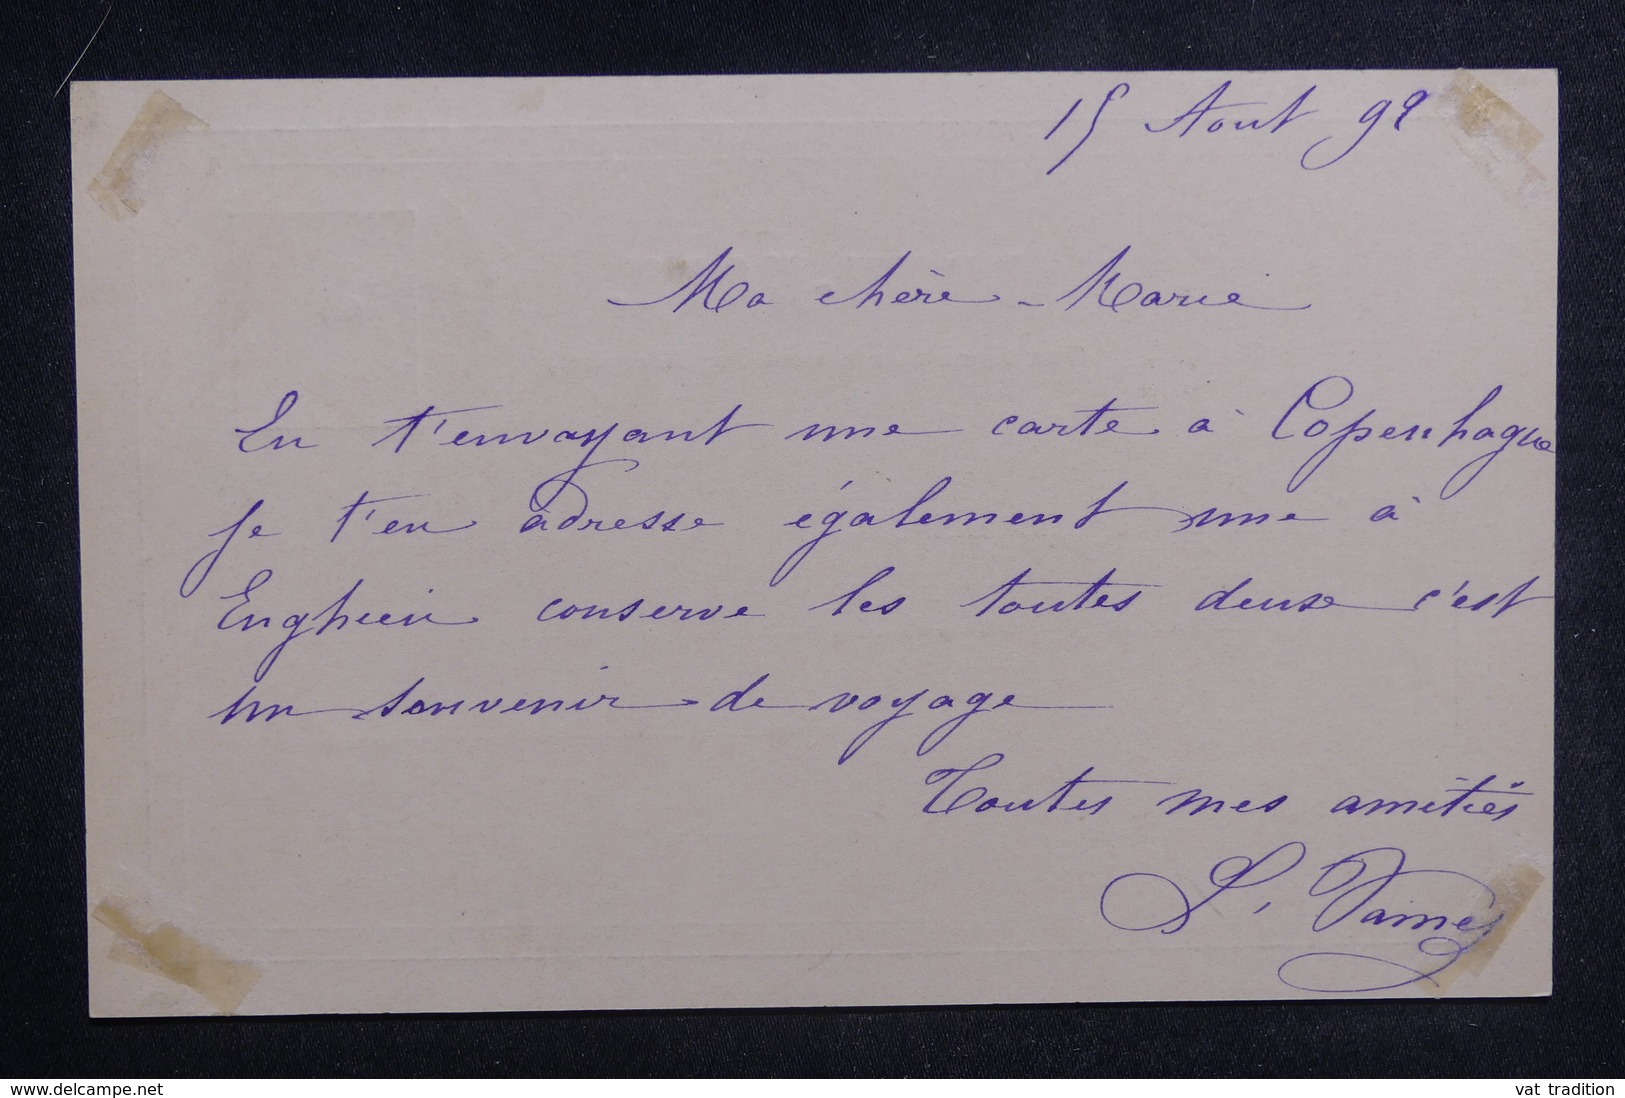 15 Aout 92
Ma chère Marie
En t'envoyant une carte à Copenhague
je t'en adresse également une à
Enghien conserve les toutes deux c'est
un souvenir de voyage
Toutes mes amitiés
S.
www.delcampe.net
vat tradition